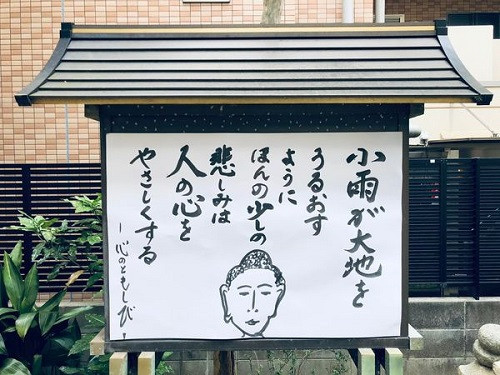 小雨が大地を
うるおす
ように
ほんの少しの
悲しみは
人の心を
やさしくする
―心のともしび―